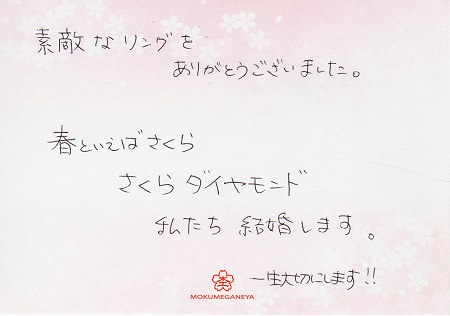 素敵なリングを
ありがとうございました。
春といえばさくら
さくらダイヤモンド
私たち 結婚します。
一生大切にします!!
MOKUMEGANEYA